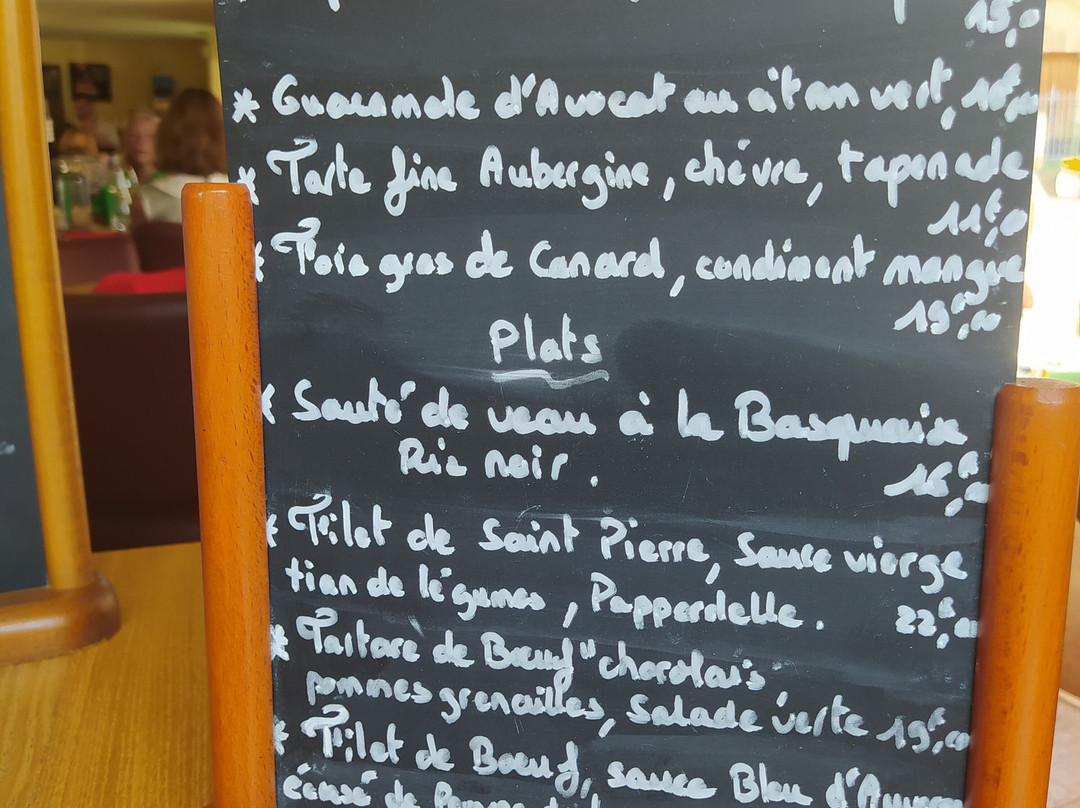 15,
* Guacamole d'Avocat au citron vert, 10€,00
* Tarte fine Aubergine, chèvre, tapenade
11€,0
* Foie gras de Canard, condiment mangue
19€,00
Plats
* Sauté de veau à la Basquaise
Riz noir. 16€,00
* Filet de Saint Pierre, Sauce vierge
tian de légumes, Papperdelle. 22€,00
* Tartare de Bœuf "charolais,
pommes grenailles, Salade verte 19€,00
* Filet de Boeuf, sauce Bleu d'Auver
écrasé de Pomme